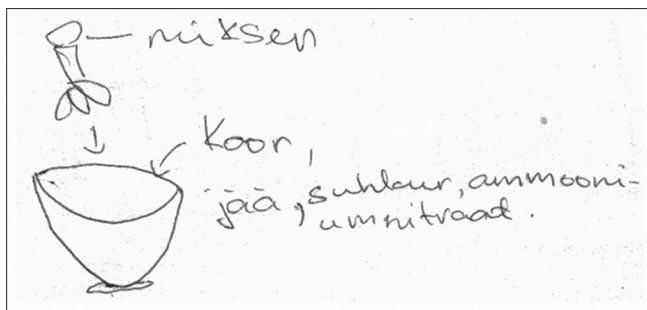 mikser
Koor,
jää, suhkur, ammooni-
umnitraad.